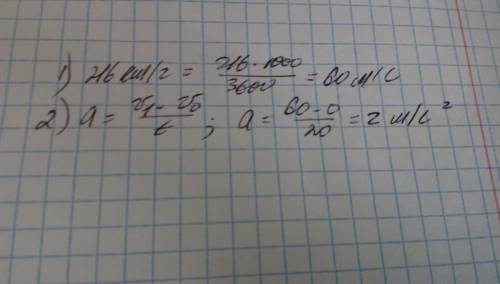 1) 216 км/г = 216 · 1000 / 3600 = 60 м/с
2) a = v1 - v0 / t ; a = 60 - 0 / 20 = 2 м/с²